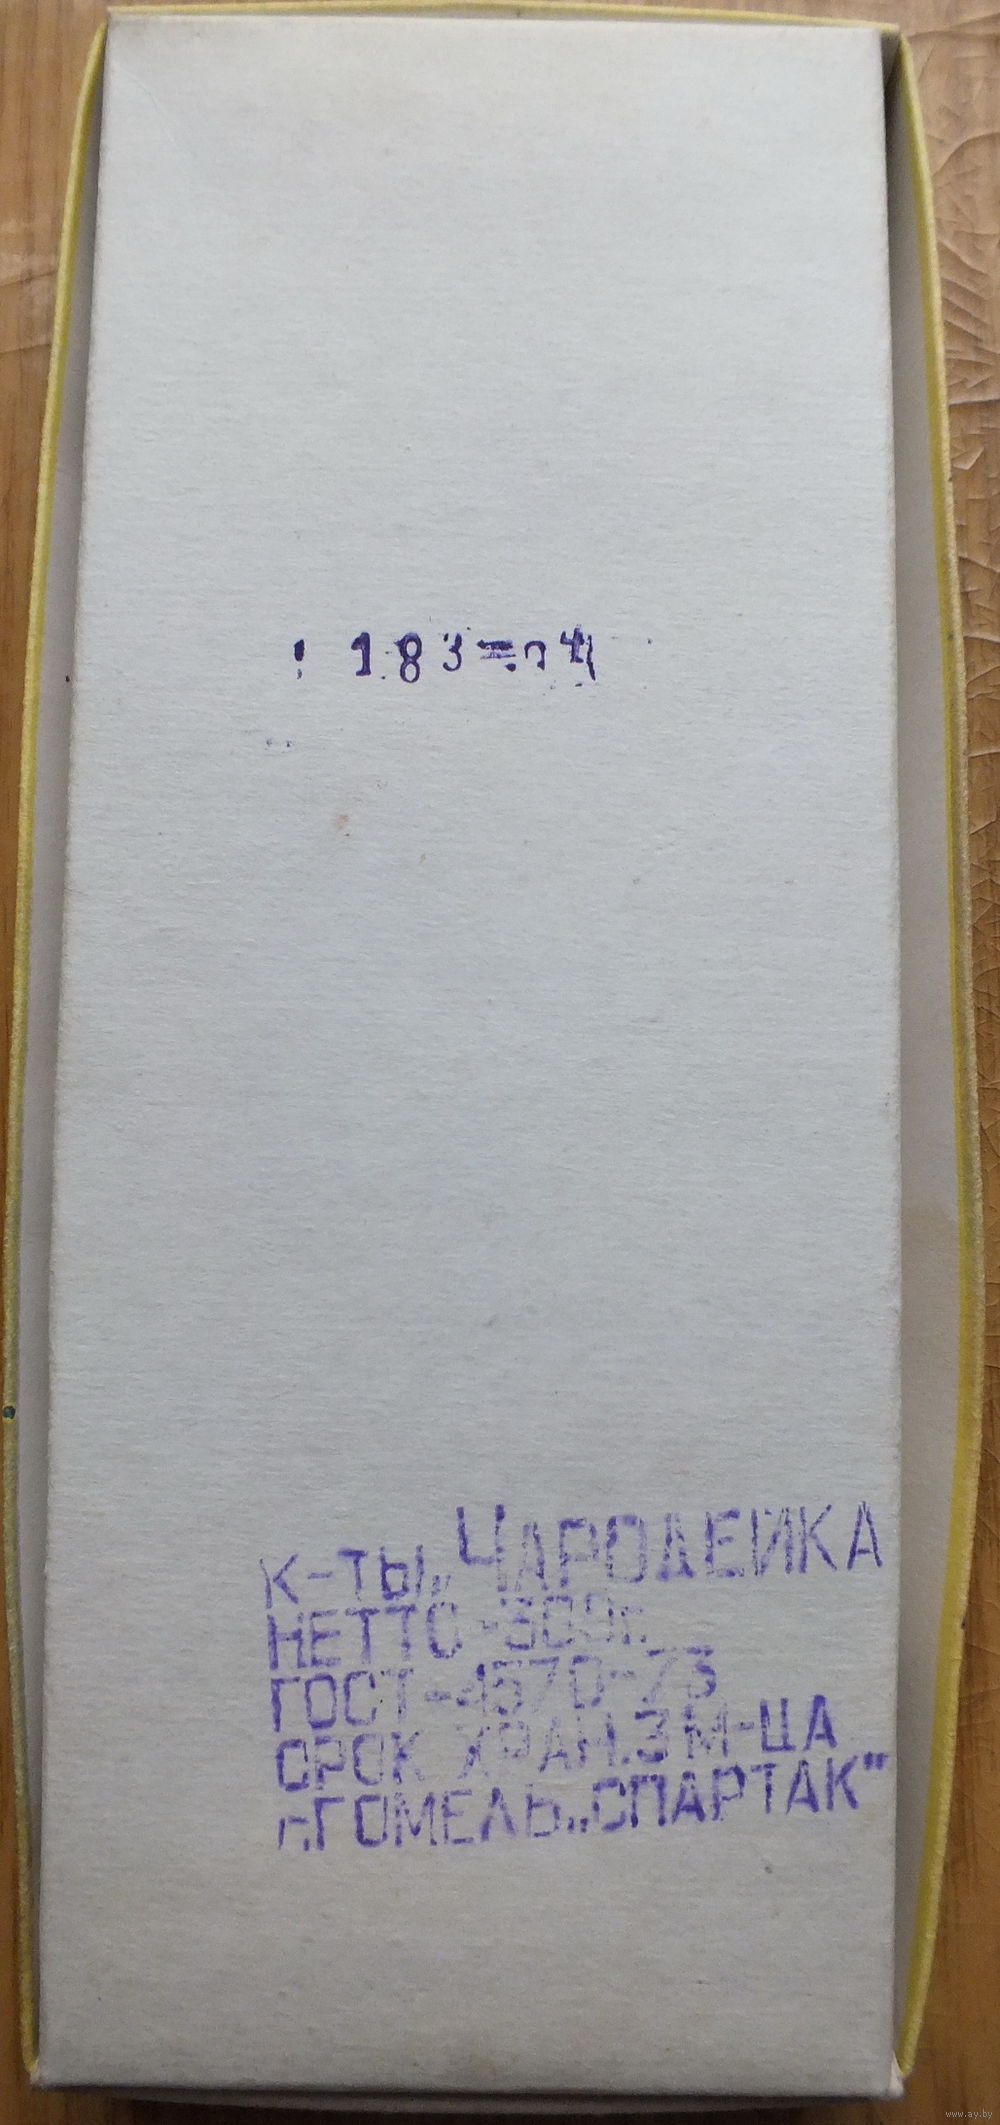 183
К-ТЫ „ЧАРОДЕЙКА
НЕТТО-300г.
ГОСТ-4570-73
СРОК ХРАН.3М-ЦА
г.ГОМЕЛЬ„СПАРТАК"
www.ay.by